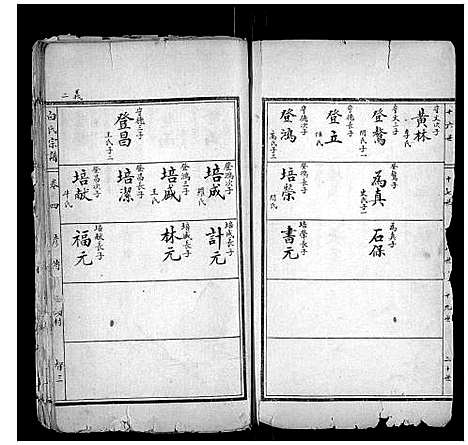 十六世
守文次子
黄林
李氏
守文三子
登鰲
閆氏子一
守德長子
登五
任氏
守德次子
登鴻
高氏子三
十七世
登鰲子
為真
史氏子一
登鴻長子
培榮
閆氏
為真子
石保
培榮長子
書元
十九世
二十世
義二
白氏宗譜
卷四
守德三子
登昌
王氏子二
登鴻次子
培成
羅氏
登鴻三子
培盛
王氏
登昌長子
培潔
登昌次子
培献
牛氏
培成長子
計元
培盛長子
林元
培献長子
福元
村